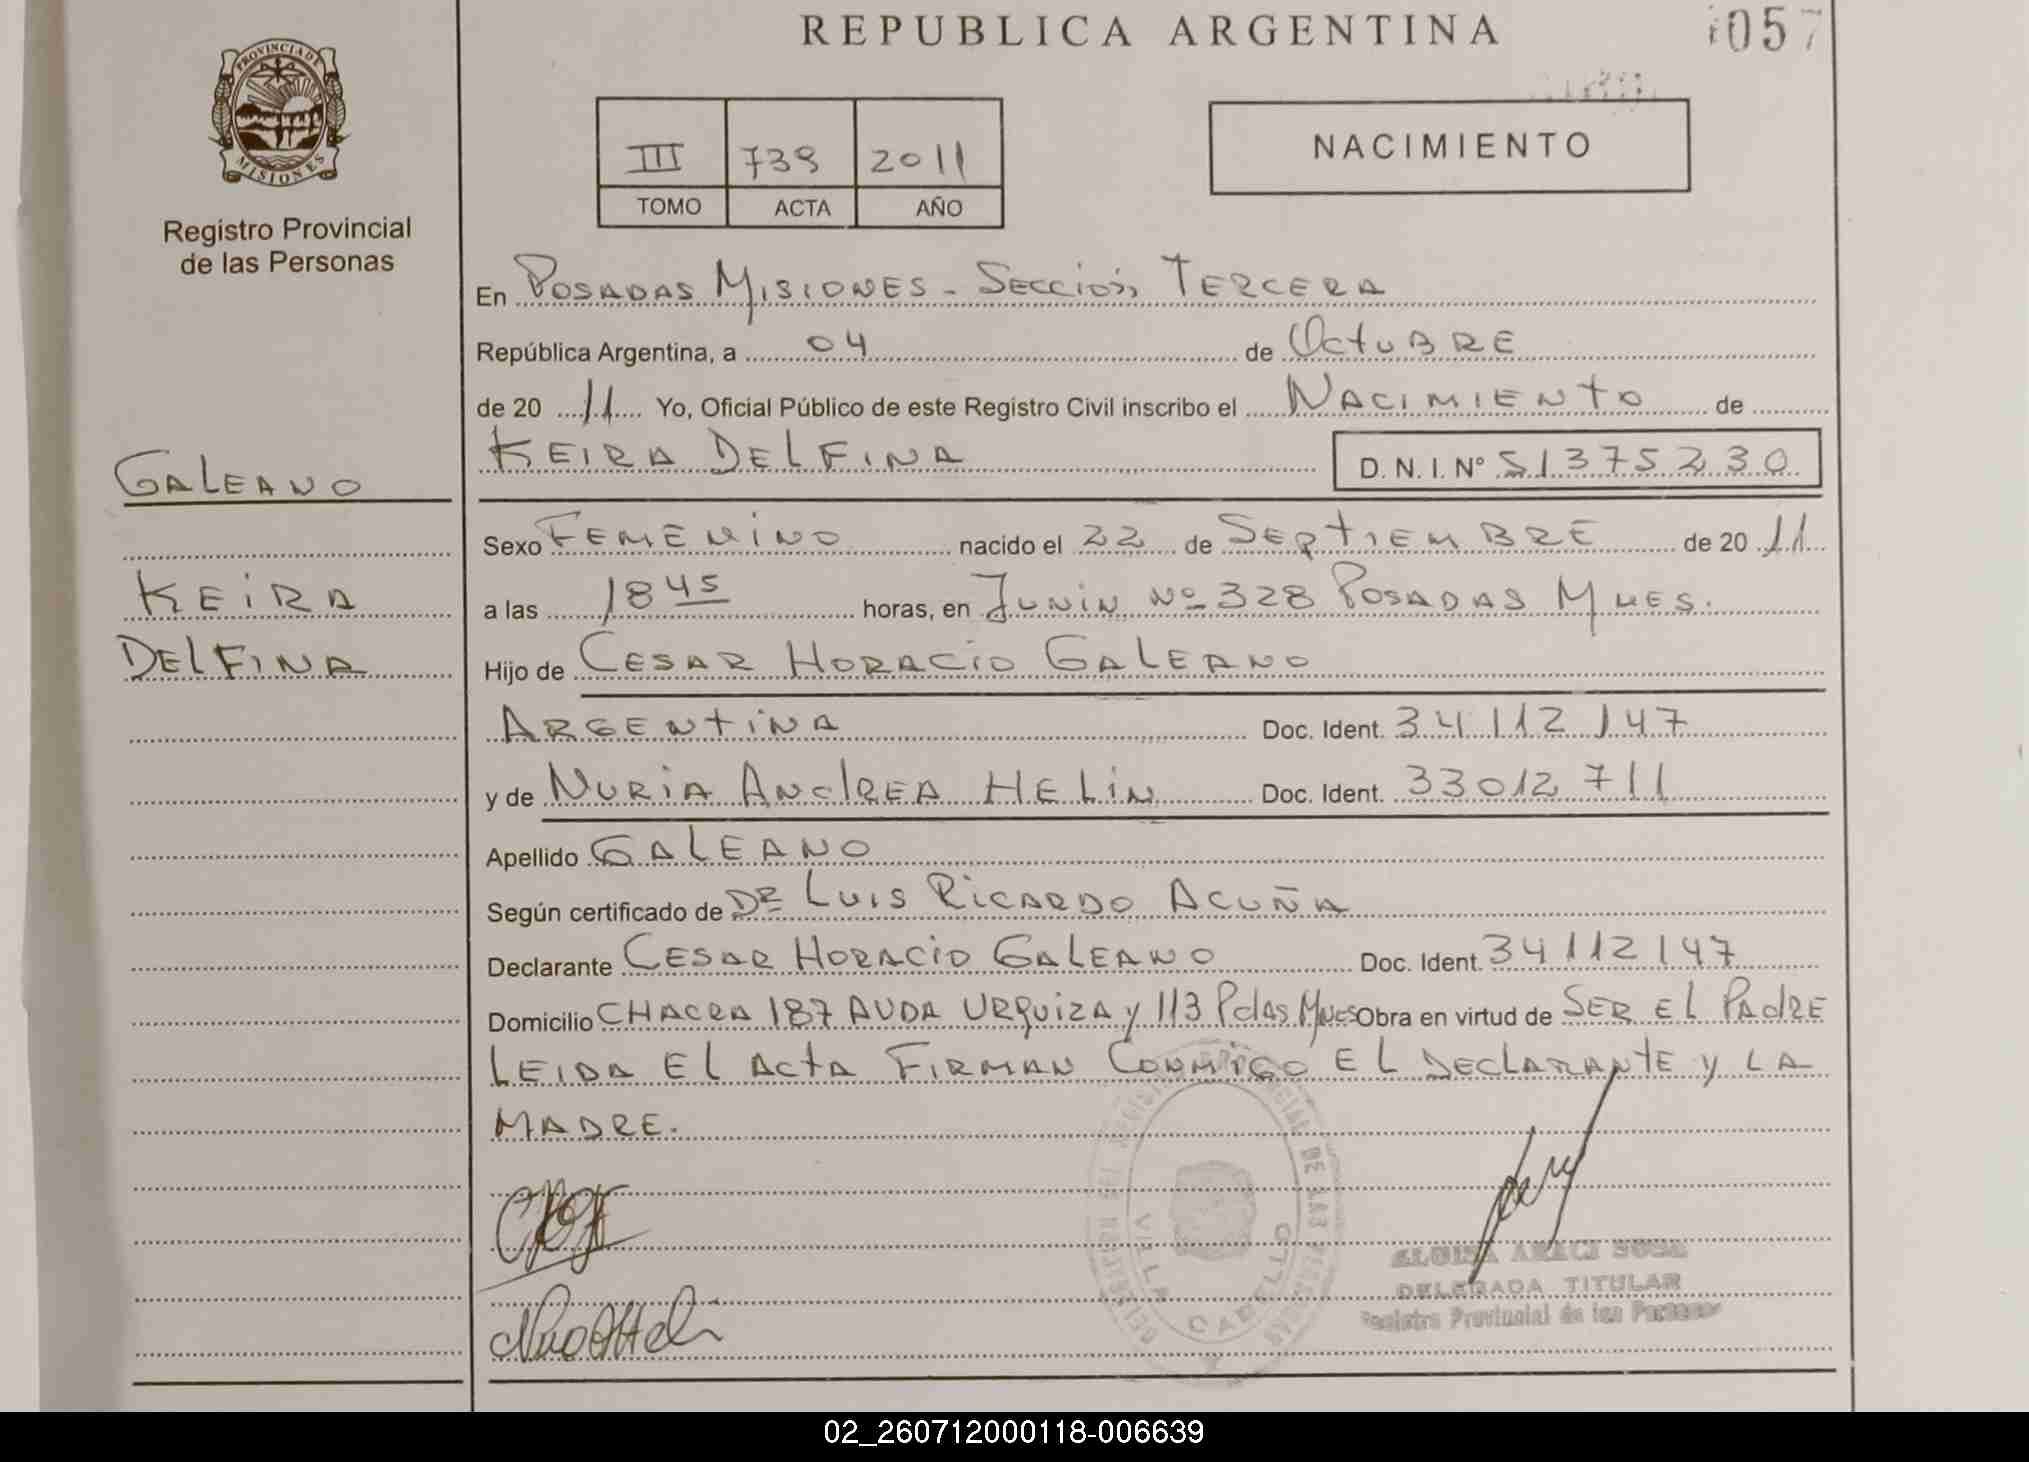 REPUBLICA ARGENTINA
057
PROVINCIA DE
MISIONES
Registro Provincial
de las Personas
III 739 2011
TOMO ACTA AÑO
NACIMIENTO
En POSADAS MISIONES - SECCIÓN TERCERA
República Argentina, a 04 de OCTUBRE
de 20 11 Yo, Oficial Público de este Registro Civil inscribo el NACIMIENTO de
KEIRA DELFINA D. N. I. Nº 51375230
GALEANO
KEIRA
DELFINA
Sexo FEMENINO nacido el 22 de SEPTIEMBRE de 20 11
a las 18 45 horas, en JUNIN Nº 328 POSADAS MNES.
Hijo de CESAR HORACIO GALEANO
ARGENTINA Doc. Ident. 34112147
y de NURIA ANDREA HELIN Doc. Ident. 33012711
Apellido GALEANO
Según certificado de DR LUIS RICARDO ACUÑA
Declarante CESAR HORACIO GALEANO Doc. Ident. 34112147
Domicilio CHACRA 187 AVDA URQUIZA y 113 Pdas Mnes Obra en virtud de SER EL PADRE
LEIDA EL ACTA FIRMAN CONMIGO EL DECLARANTE y LA
MADRE.
VILLA CABELLO
DELEGADA TITULAR
Registro Provincial de las Personas
02_260712000118-006639